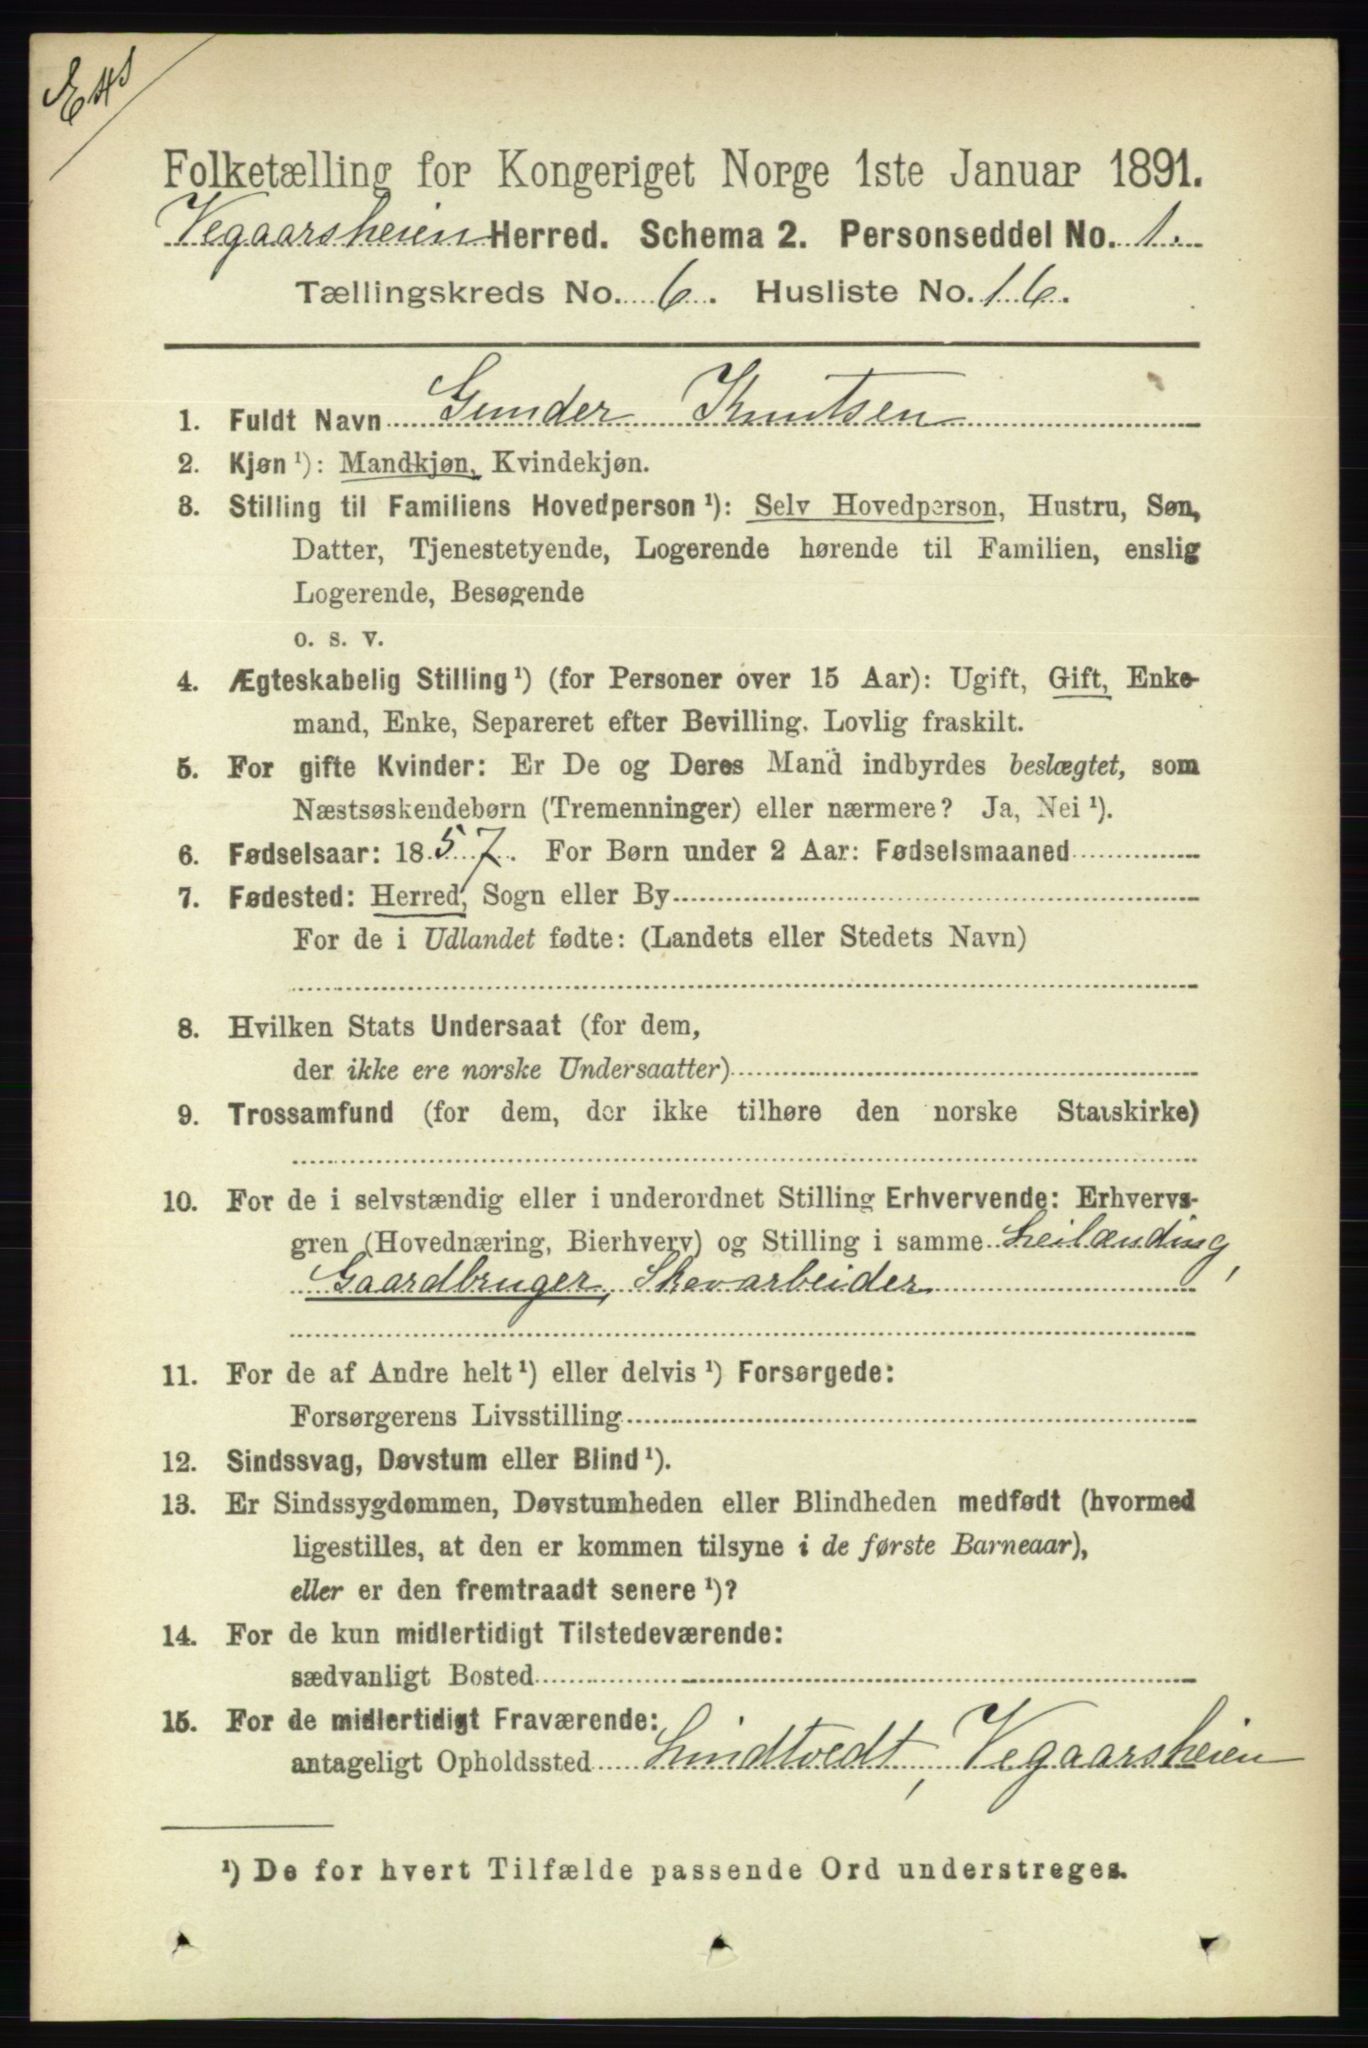 Folketælling for Kongeriget Norge 1ste Januar 1891.
Vegaarsheien Herred. Schema 2. Personseddel No. 1.
Tællingskreds No. 6. Husliste No. 16.
1. Fuldt Navn Gunder Knutsen
2. Kjøn ¹): Mandkjøn, Kvindekjøn.
3. Stilling til Familiens Hovedperson ¹): Selv Hovedperson, Hustru, Søn,
Datter, Tjenestetyende, Logerende hørende til Familien, enslig
Logerende, Besøgende
o. s. v.
4. Ægteskabelig Stilling ¹) (for Personer over 15 Aar): Ugift, Gift, Enke-
mand, Enke, Separeret efter Bevilling. Lovlig fraskilt.
5. For gifte Kvinder: Er De og Deres Mand indbyrdes beslægtet, som
Næstsøskendebørn (Tremenninger) eller nærmere? Ja, Nei ¹).
6. Fødselsaar: 1857. For Børn under 2 Aar: Fødselsmaaned
7. Fødested: Herred, Sogn eller By
For de i Udlandet fødte: (Landets eller Stedets Navn)
8. Hvilken Stats Undersaat (for dem,
der ikke ere norske Undersaatter)
9. Trossamfund (for dem, der ikke tilhøre den norske Statskirke)
10. For de i selvstændig eller i underordnet Stilling Erhvervende: Erhvervs-
gren (Hovednæring, Bierhverv) og Stilling i samme Leilænding,
Gaardbruger, Skovarbeider
11. For de af Andre helt ¹) eller delvis ¹) Forsørgede:
Forsørgerens Livsstilling
12. Sindssvag, Døvstum eller Blind ¹).
13. Er Sindssygdommen, Døvstumheden eller Blindheden medfødt (hvormed
ligestilles, at den er kommen tilsyne i de første Barneaar),
eller er den fremtraadt senere ¹)?
14. For de kun midlertidigt Tilstedeværende:
sædvanligt Bosted
15. For de midlertidigt Fraværende:
antageligt Opholdssted Lindtvedt, Vegaarsheien
¹) De for hvert Tilfælde passende Ord understreges.